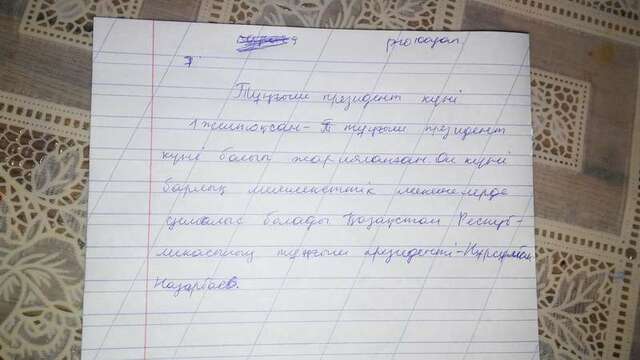 Тұңғыш президент күні
1 желтоқсан- тұңғыш президент
күні болып жарияланған Ол күні
барлық мемлекеттік мекемелерде
демалыс болады Қазақстан Респуб-
ликасының тұңғыш президенті-Нұрсұлтан
Назарбаев.